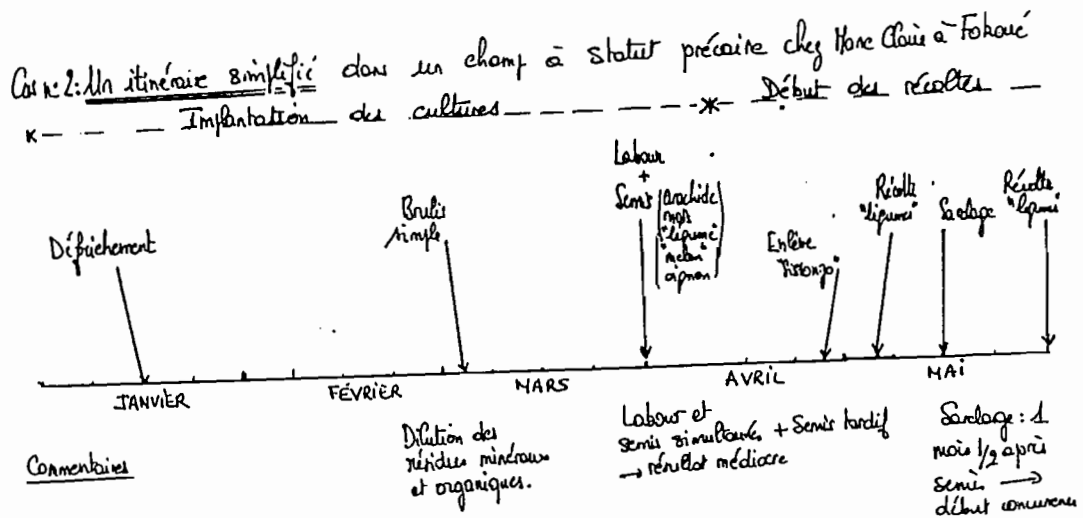 Cas n: 2: Un itinéraire simplifié dans un champ à statut précaire chez Marc Claire à Fokoué
Implantation des cultures
Début des récoltes
Défrichement
Brulis
simple
Labour
+
Semis
arachide
maïs
"légume"
"melon"
oignon
Enlève
Récolte
"légumes"
Sarclage
Récolte
"légumes"
JANVIER
FÉVRIER
MARS
AVRIL
MAI
Commentaires
Dilution des
résidus minéraux
et organiques.
Labour et
semis simultanés + Semis tardif
→ résultat médiocre
Sarclage: 1
mois 1/2 après
semis →
début concurrence